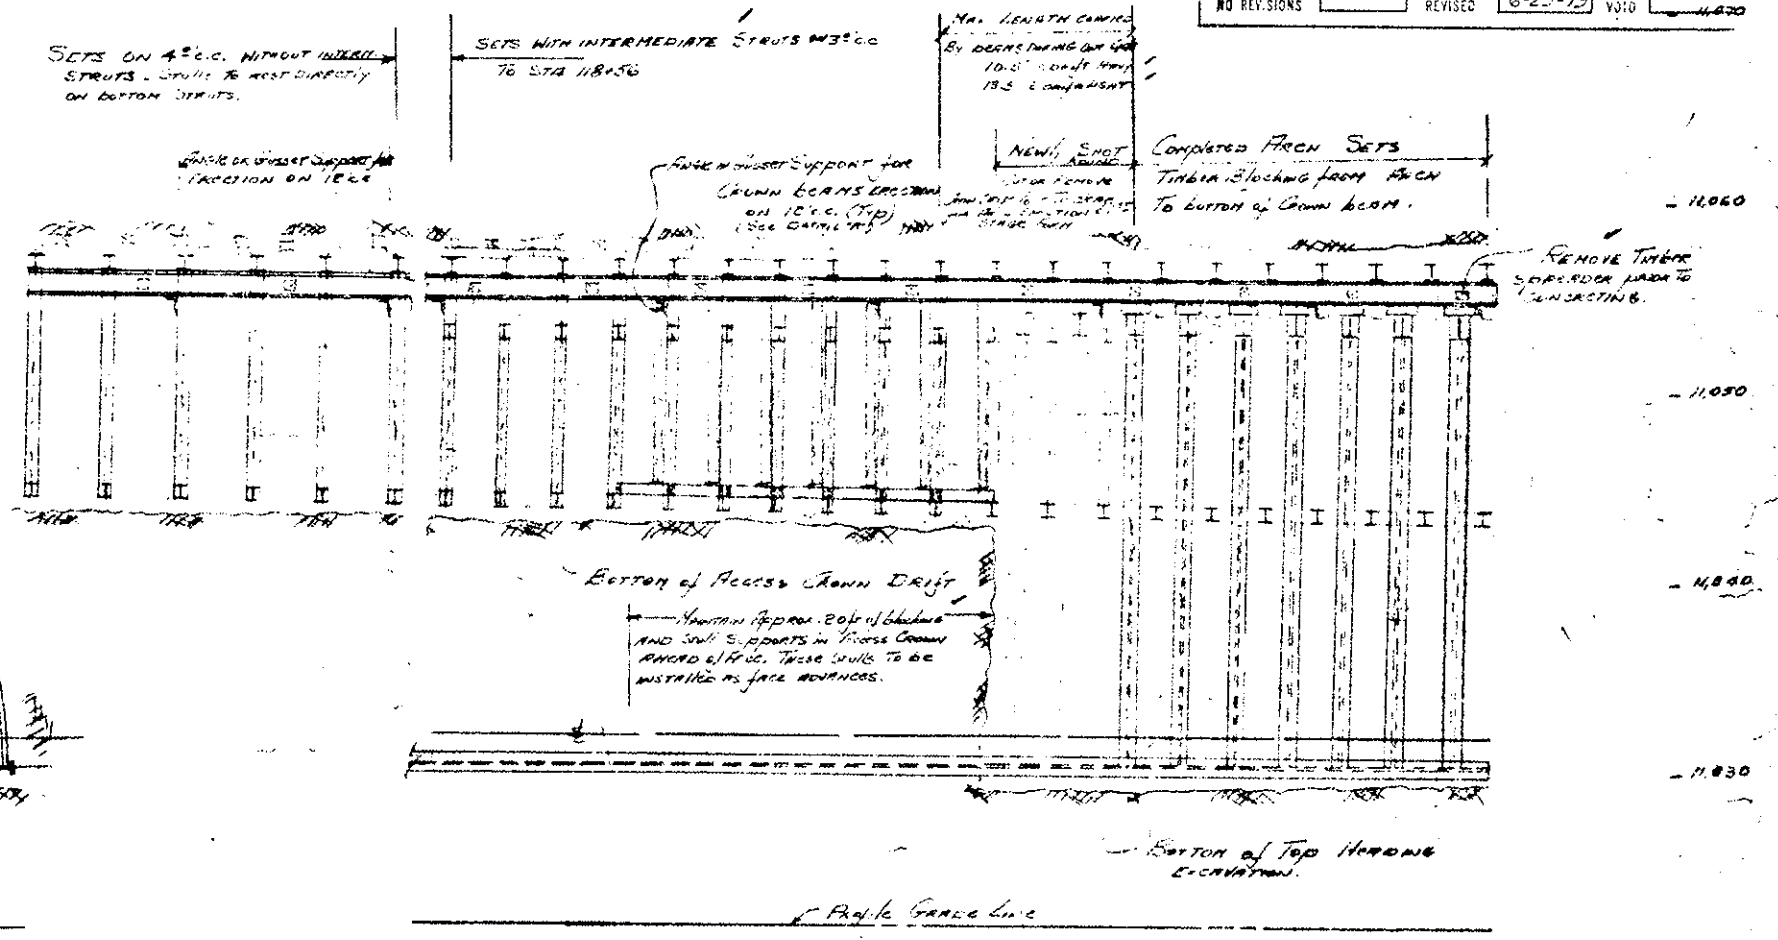 NO REVISIONS
REVISED 6-25-75 VOID
11,070
SETS ON 4'0 c.c. WITHOUT INTERM.
STRUTS. STULLS TO REST DIRECTLY
ON BOTTOM STRUTS.
SETS WITH INTERMEDIATE STRUTS 3'0 c.c.
TO STA 118+56
MAX. LENGTH CARRIED
BY BEAMS DURING
ANGLE OR GUSSET SUPPORT for
ERECTION ON 12' c.c.
ANGLE OR GUSSET SUPPORT for
CROWN BEAMS ERECTION
ON 12' c.c. (Typ)
(SEE DETAIL "A")
NEWLY SHOT
ROUND
REMOVE
COMPLETED ARCH SETS
TIMBER Blocking from ARCH
To bottom of Crown beam.
11,060
REMOVE TIMBER
SPREADER PRIOR TO
CONCRETING.
11,050
BOTTOM of ACCESS CROWN DRIFT
MAINTAIN APPROX. 20 ft of blocking
AND Stull SUPPORTS in ACCESS CROWN
AHEAD of FACE. THESE Stulls TO BE
INSTALLED AS face ADVANCES.
11,040
11,030
BOTTOM of TOP HEADING
EXCAVATION.
Profile GRADE Line